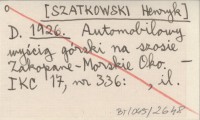 [SZATKOWSKI Henryk]
D. 1926. Automobilowy
wyścig górski na szosie
Zakopane-Morskie Oko. —
IKC 17, nr 336: , il.